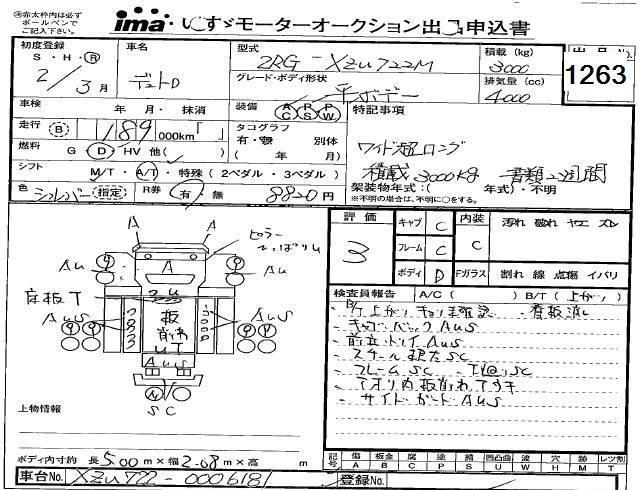 ※赤太枠内は必ず
ボールペンで
ご記入下さい。
ima いすゞモーターオークション出品申込書
出品No.
1263
初度登録 S・H・R 2/3月
車名 デュトロ
型式 2RG-XZU722M
積載 (kg) 3000
グレード・ボディ形状 平ボデー
排気量 (cc) 4000
車検 年・月・抹消
装備 AC PS PW
特記事項
走行 189 000km「 」
タコグラフ 有・無 別体
( 年 月)
ワイド超ロング
燃料 G・D・HV 他( )
シフト M/T・A/T・特殊 (2ペダル・3ペダル)
積載3000kg 書類2週間
架装物年式:( 年式)・不明
※不明の場合は、不明に○をする。
色 シルバー(指定) R券 有 無 8820円
評価 3
キャブ C
フレーム C
ボディ D
内装 C
Fガラス
汚れ 破れ ヤエ ズレ
割れ 線 点傷 イバリ
検査員報告 A/C ( ) B/T (上がり)
A A
ピラー
AU AU
A
床板T
板
削れ
UT
AUS AUS
AUS
SC
キャブバックAUS
スチール SC
フレームSC
アオリ内板削れ
サイドガードAUS
上物情報
ボディ内寸約 長5.00m×幅2.08m×高 m
記号 傷A 板B 腐C 塗P 錆S 凹凸曲U 波W 穴H 跡M レツ割T
車台No. XZU722-0006181
登録No.